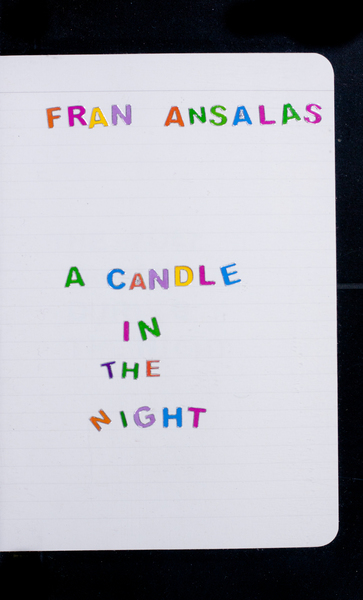 FRAN ANSALAS
A CANDLE
IN
THE
NIGHT